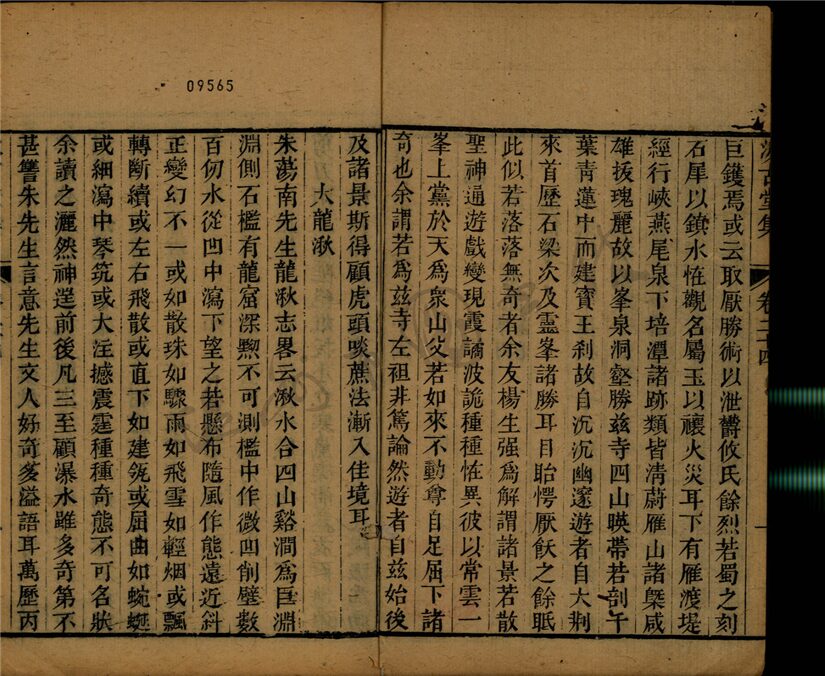 09565
巨鑊焉或云取厭勝術以泄欝攸氏餘烈若蜀之刻
石犀以鎮水恠觀名屬玉以禳火災耳下有雁渡堤
經行峽燕尾泉下培潭諸跡類皆清蔚雁山諸槩咸
雄拔瑰麗故以峯泉洞壑勝兹寺四山暎帶若剖千
葉青蓮中而建寳王刹故自沉沉幽邃遊者自大荆
來首歷石梁次及靈峯諸勝耳目眙愕厭飫之餘眂
此似若落落無奇者余友楊生强爲解謂諸景若散
聖神通遊戲變現霞譎波詭種種恠異彼以常雲一
峯上黨於天爲衆山父若如來不動尊自足屈下諸
奇也余謂若爲兹寺左袒非篤論然遊者自兹始後
及諸景斯得顧虎頭啖蔗法漸入佳境耳
大龍湫
朱蕩南先生龍湫志畧云湫水合四山谿澗爲巨淵
淵側石檻有龍窟深黝不可測檻中作微凹削壁數
百仞水從凹中瀉下望之若懸布隨風作態遠近斜
正變幻不一或如散珠如驟雨如飛雪如輕烟或飄
轉斷續或左右飛散或直下如建瓴或屈曲如蜿蜒
或細瀉中琴筑或大注撼震霆種種奇態不可名狀
余讀之灑然神逞前後凡三至顧瀑水雖多奇第不
甚讐朱先生言意先生文人好奇多溢語耳萬歷丙
卷二十四